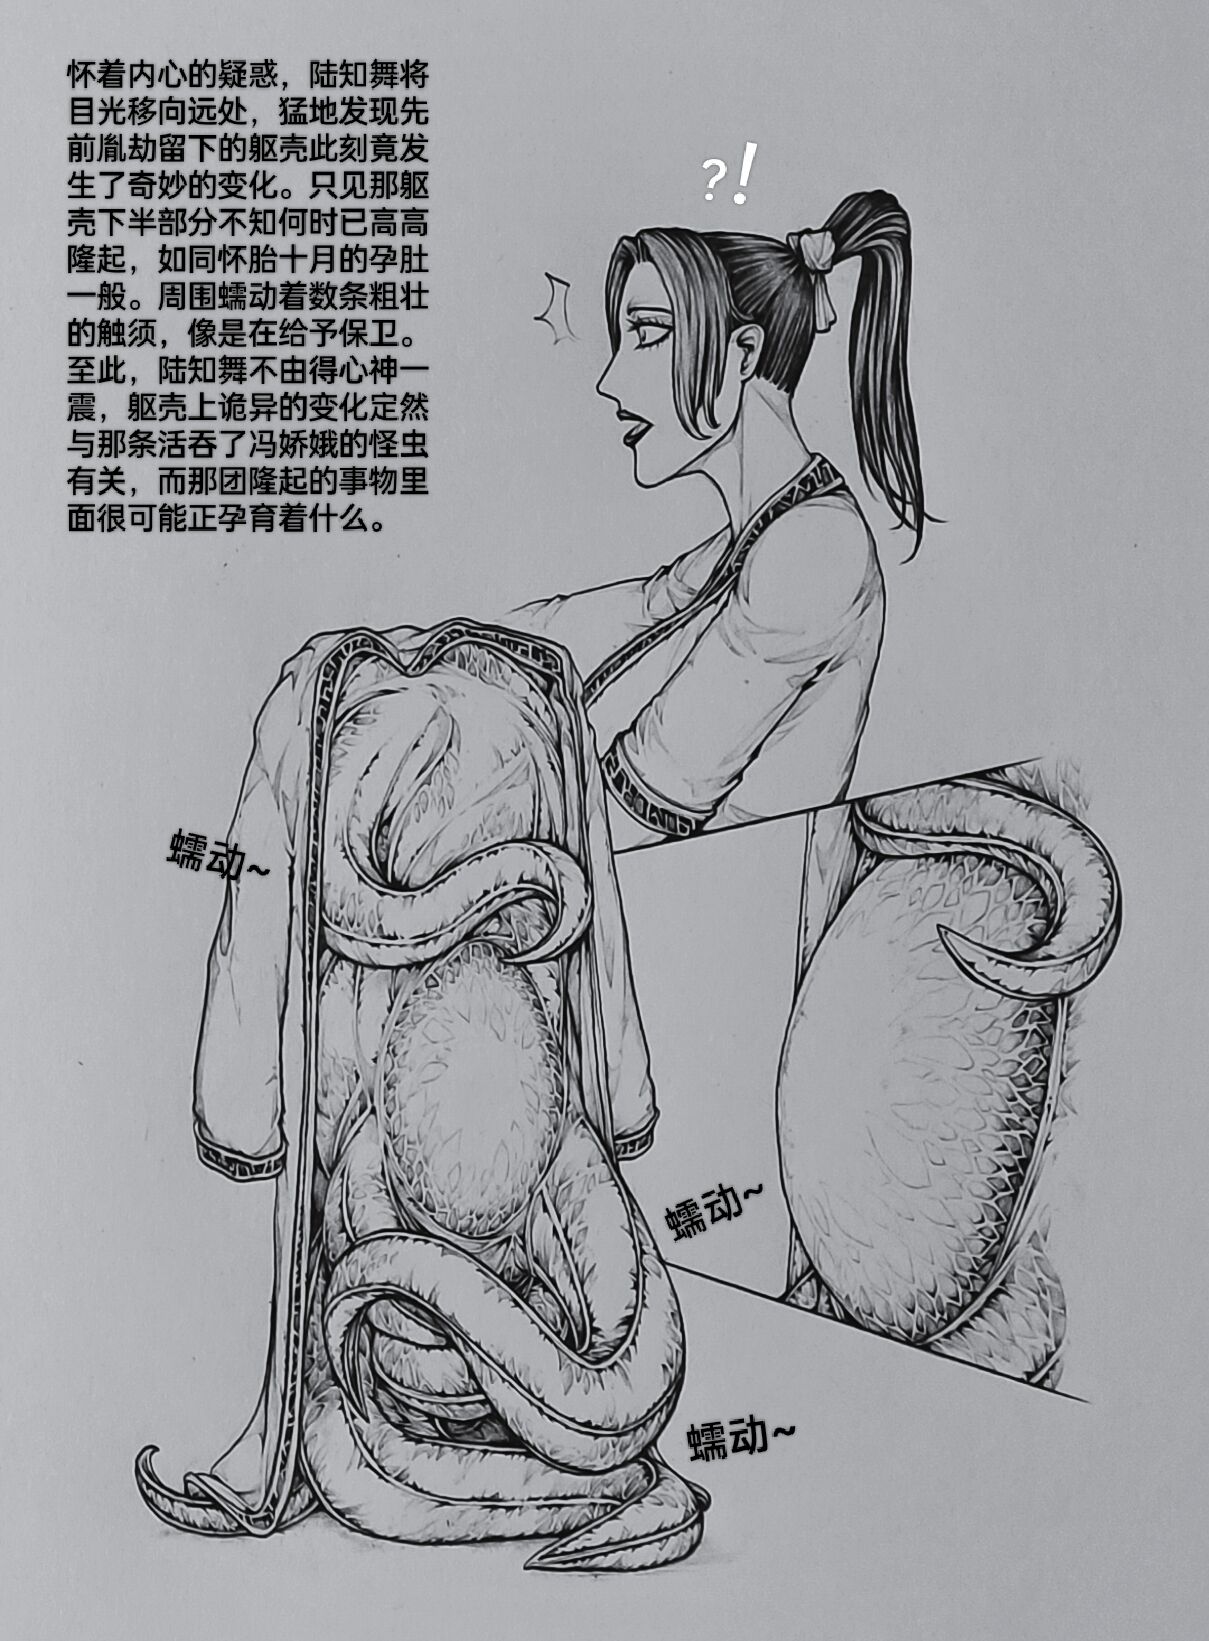 怀着内心的疑惑，陆知舞将
目光移向远处，猛地发现先
前胤劫留下的躯壳此刻竟发
生了奇妙的变化。只见那躯
壳下半部分不知何时已高高
隆起，如同怀胎十月的孕肚
一般。周围蠕动着数条粗壮
的触须，像是在给予保卫。
至此，陆知舞不由得心神一
震，躯壳上诡异的变化定然
与那条活吞了冯娇娥的怪虫
有关，而那团隆起的事物里
面很可能正孕育着什么。
?!
蠕动~
蠕动~
蠕动~